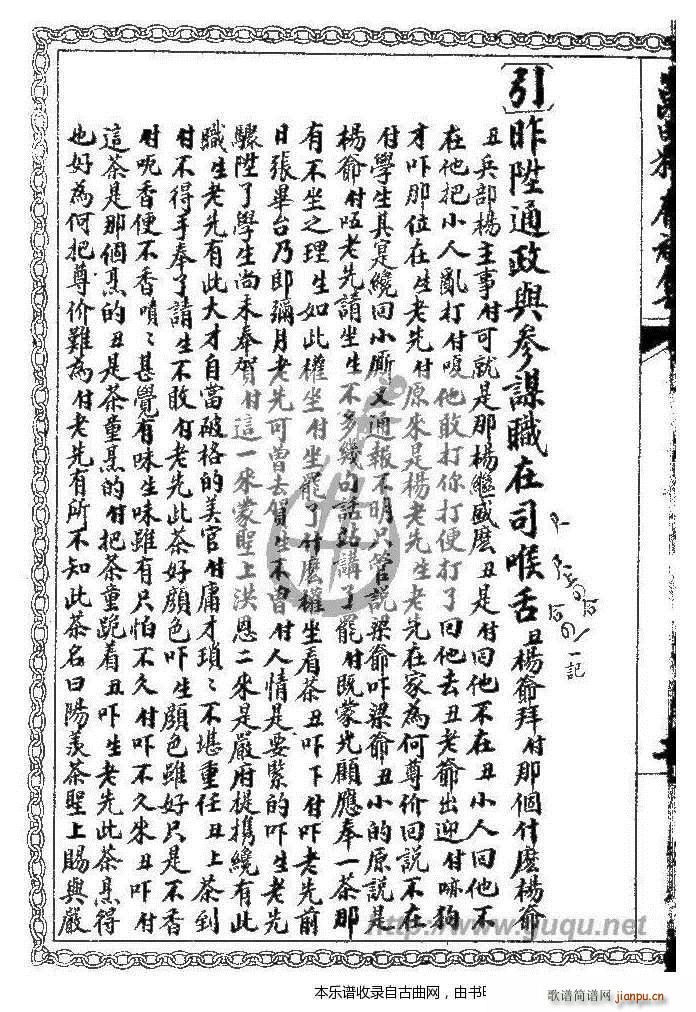 【引】昨陞通政與參謀職在司喉舌丑楊爺拜付那個什麽楊爺
丑兵部楊主事付可就是那楊繼盛麽丑是付回他不在丑小人回他不
在他把小人亂打付嗄他敢打你打便打了回他去丑老爺出迎付
才吓那位在生老先付原來是楊老先生老先在家為何尊价回説不在
付學生具定纔回小廝通報不明只管説梁爺吓梁爺丑小的原説是
楊爺付唔老先請坐生不多幾句話站講了罷付既蒙光顧應奉一茶那
有不坐之理生如此權坐付坐罷了什麽權坐看茶丑吓下付吓老先前
日張畢台乃郎彌月老先可曾去賀生不曾付人情是要緊的吓生老先
驟陞了學生尚未奉賀付這一來蒙聖上洪恩二來是嚴府提携纔有此
職生老先有此大才自當破格的美官付庸才瑣〻不堪重任丑上茶到
付不得手奉了請生不敢付老先此茶好顔色吓生顔色雖好只是不香
付呃香便不香嘖〻甚覺有味生味雖有只怕不久付吓不久來丑吓付
這茶是那個烹的丑是茶童烹的付把茶童跪着丑吓生老先此茶烹得
也好為何把尊价難為付老先有所不知此茶名曰陽羨茶聖上賜與嚴
一記
http://www.guqu.net
本乐谱收录自古曲网，由书
歌谱简谱网
jianpu.cn